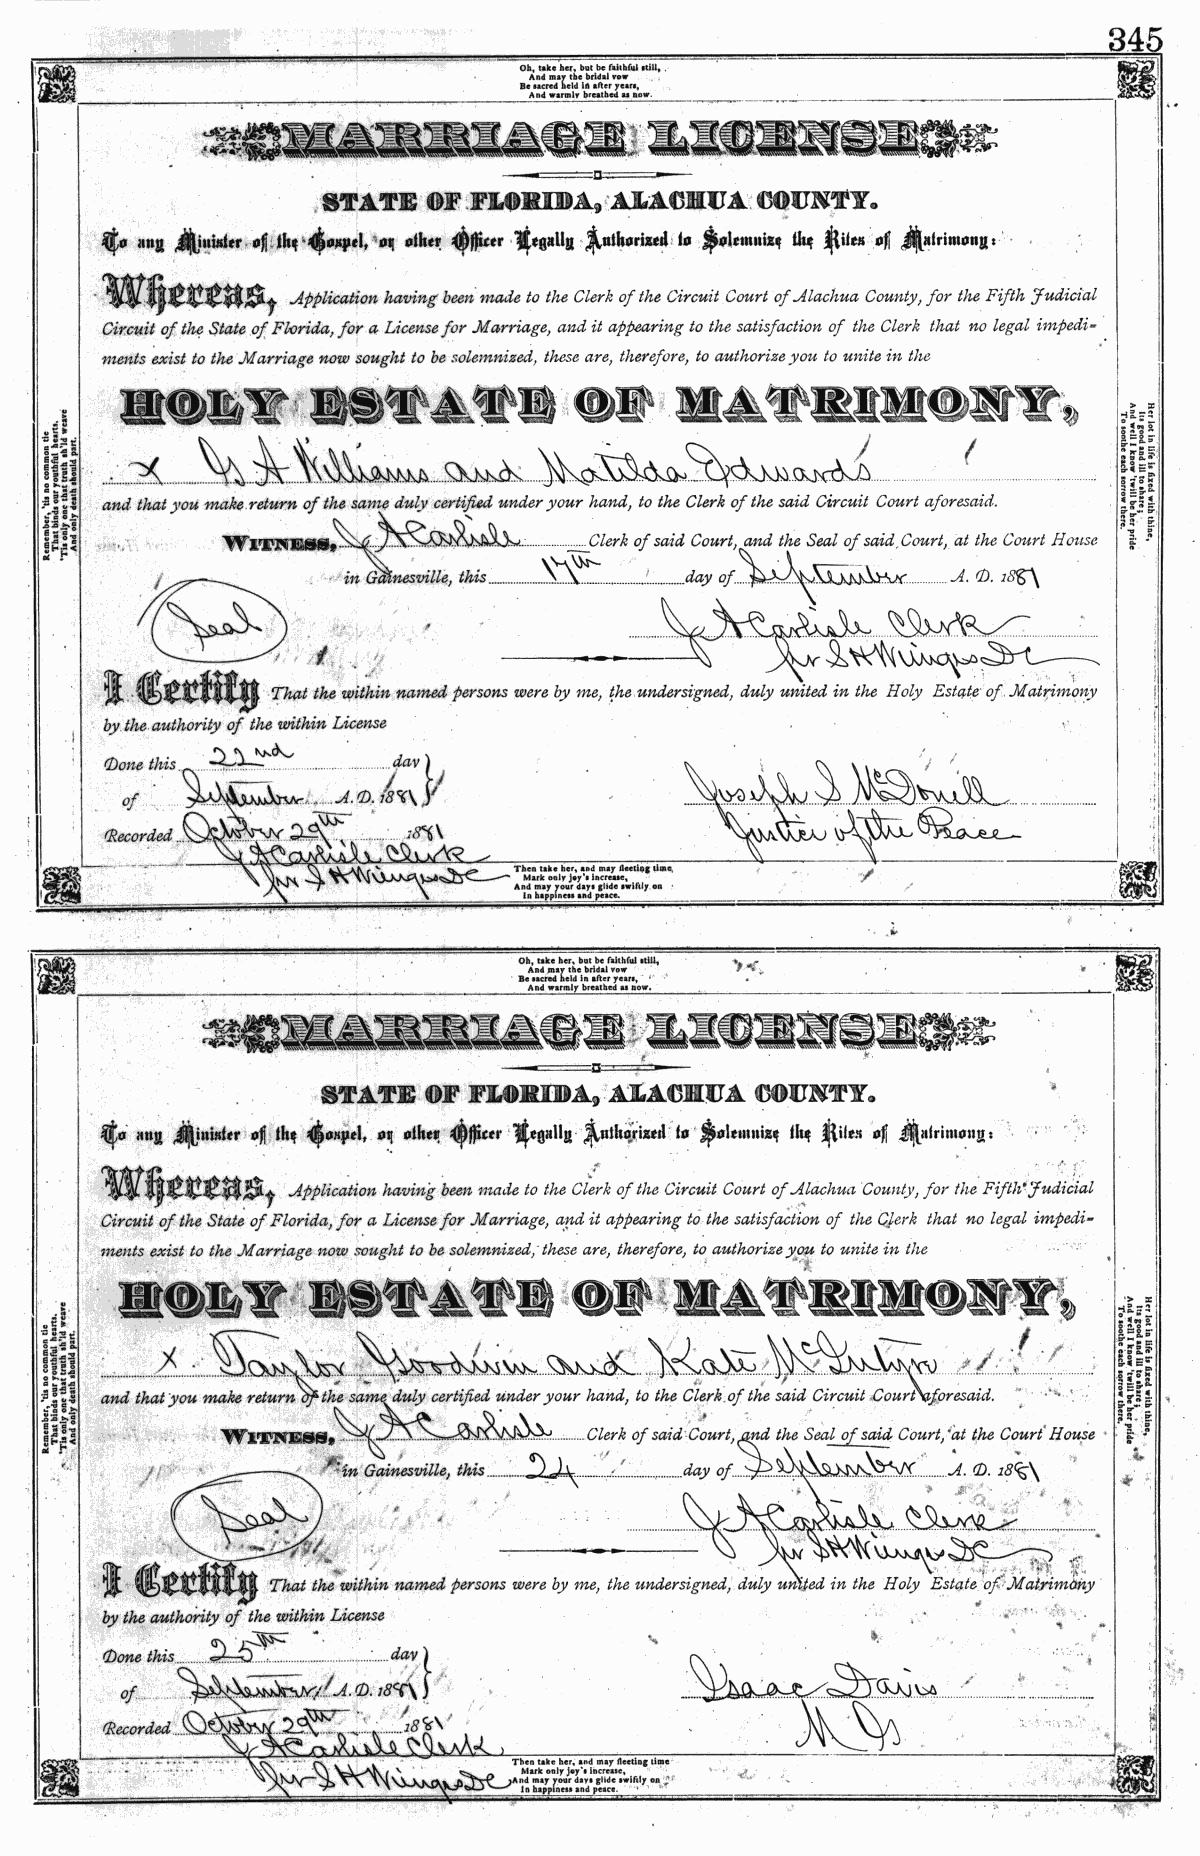 345
Oh, take her, but be faithful still,
And may the bridal vow
Be sacred held in after years,
And warmly breathed as now.
MARRIAGE LICENSE
STATE OF FLORIDA, ALACHUA COUNTY.
To any Minister of the Gospel, or other Officer Legally Authorized to Solemnize the Rites of Matrimony:
Whereas, Application having been made to the Clerk of the Circuit Court of Alachua County, for the Fifth Judicial
Circuit of the State of Florida, for a License for Marriage, and it appearing to the satisfaction of the Clerk that no legal impedi-
ments exist to the Marriage now sought to be solemnized, these are, therefore, to authorize you to unite in the
HOLY ESTATE OF MATRIMONY,
x G A Williams and Matilda Edwards
and that you make return of the same duly certified under your hand, to the Clerk of the said Circuit Court aforesaid.
WITNESS, J A Carlisle Clerk of said Court, and the Seal of said Court, at the Court House
in Gainesville, this 17th day of September A. D. 1881
Seal
J A Carlisle Clerk
pr S H Wienges DC
I Certify That the within named persons were by me, the undersigned, duly united in the Holy Estate of Matrimony
by the authority of the within License
Done this 22nd day
of September A. D. 1881
Joseph S McDonell
Recorded October 29th 1881
Justice of the Peace
J A Carlisle Clerk
pr S H Wienges DC
Then take her, and may fleeting time,
Mark only joy's increase,
And may your days glide swiftly on
In happiness and peace.
Remember, 'tis no common tie
That binds our youthful hearts,
'Tis only one that truth sh'ld weave
And only death should part.
Her lot in life is fixed with thine,
Its good and ill to share;
And well I know 'twill be her pride
To soothe each sorrow there.
Oh, take her, but be faithful still,
And may the bridal vow
Be sacred held in after years,
And warmly breathed as now.
MARRIAGE LICENSE
STATE OF FLORIDA, ALACHUA COUNTY.
To any Minister of the Gospel, or other Officer Legally Authorized to Solemnize the Rites of Matrimony:
Whereas, Application having been made to the Clerk of the Circuit Court of Alachua County, for the Fifth Judicial
Circuit of the State of Florida, for a License for Marriage, and it appearing to the satisfaction of the Clerk that no legal impedi-
ments exist to the Marriage now sought to be solemnized, these are, therefore, to authorize you to unite in the
HOLY ESTATE OF MATRIMONY,
x Taylor Goodwin and Kate McIntyre
and that you make return of the same duly certified under your hand, to the Clerk of the said Circuit Court aforesaid.
WITNESS, J A Carlisle Clerk of said Court, and the Seal of said Court, at the Court House
in Gainesville, this 24 day of September A. D. 1881
Seal
J A Carlisle Clerk
pr S H Wienges DC
I Certify That the within named persons were by me, the undersigned, duly united in the Holy Estate of Matrimony
by the authority of the within License
Done this 25th day
of September A. D. 1881
Isaac Davis
M G
Recorded October 29th 1881
J A Carlisle Clerk
pr S H Wienges DC
Then take her, and may fleeting time
Mark only joy's increase,
And may your days glide swiftly on
In happiness and peace.
Remember, 'tis no common tie
That binds our youthful hearts,
'Tis only one that truth sh'ld weave
And only death should part.
Her lot in life is fixed with thine,
Its good and ill to share;
And well I know 'twill be her pride
To soothe each sorrow there.